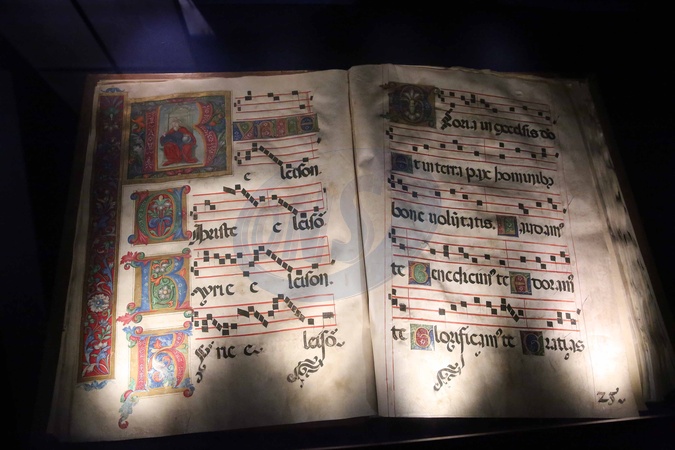 KYRIE
e leison.
Christe e leisō
Kyrie e leison.
Kyrie e leisō
Gloria in excelsis dō
Et in terra pax hominibꝫ
bone volūtatis. Laudamꝰ
te Benedicimꝰ te Adoramꝰ
te Glorificamꝰ te Gratias
25.